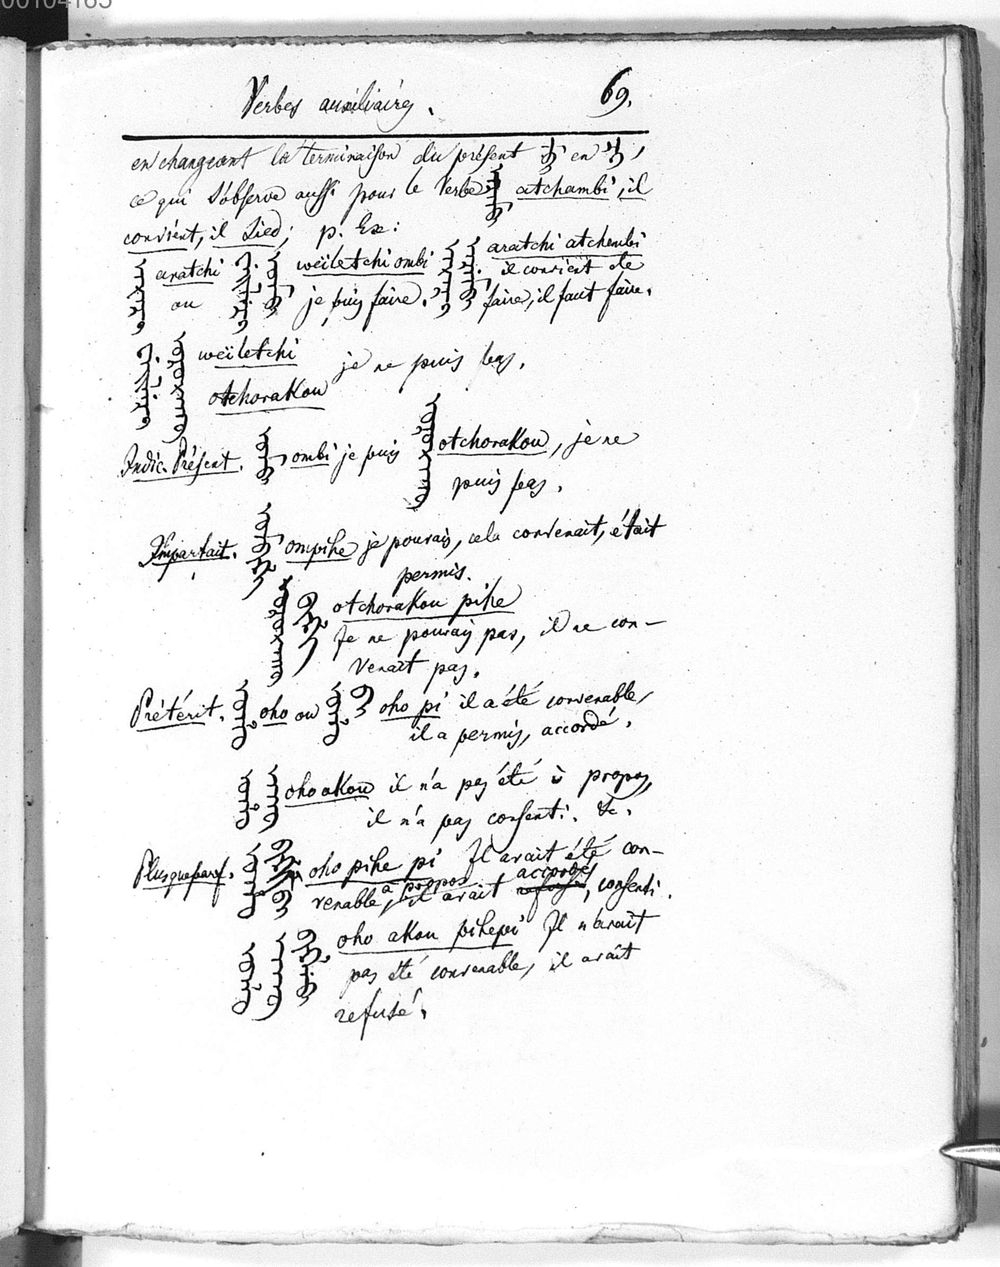 00104165
Verbes auxiliaires. 69.
en changeant la terminaison du présent ᠮᠪᡳ en ᠴᡳ,
ce qui s'observe aussi pour le Verbe ᠠᠴᠠᠮᠪᡳ atchambi, il
convient, il sied; p. Ex:
ᠠᡵᠠᠴᡳ aratchi ou ᠸᡝᡳᠯᡝᠴᡳ ᠣᠮᠪᡳ weïletchi ombi je puis faire. ᠠᡵᠠᠴᡳ ᠠᠴᠠᠮᠪᡳ aratchi atchembi il convient de
faire, il faut faire.
ᠸᡝᡳᠯᡝᠴᡳ ᠣᠵᠣᡵᠠᡴᡡ weïletchi
otchorakou je ne puis pas.
Indic. Présent. ᠣᠮᠪᡳ ombi je puis ᠣᠵᠣᡵᠠᡴᡡ otchorakou, je ne
puis pas.
Imparfait. ᠣᠮᠪᡳᡥᡝ ompihe je pouvais, cela convenait, était
permis.
ᠣᠵᠣᡵᠠᡴᡡ ᠪᡳᡥᡝ otchorakou pihe
Je ne pouvais pas, il ne con-
venait pas.
Prétérit. ᠣᡥᠣ oho ou ᠣᡥᠣ ᠪᡳ oho pi il a été convenable,
il a permis, accordé.
ᠣᡥᠣ ᠠᡴᡡ oho akou il n'a pas été à propos,
il n'a pas consenti. &c.
Plusqueparf. ᠣᡥᠣ ᠪᡳᡥᡝ ᠪᡳ oho pihe pi Il avait été con-
venable, à propos, il avait accordé, consenti.
ᠣᡥᠣ ᠠᡴᡡ ᠪᡳᡥᡝᠪᡳ oho akou pihepi Il n'avait
pas été convenable, il avait
refusé.